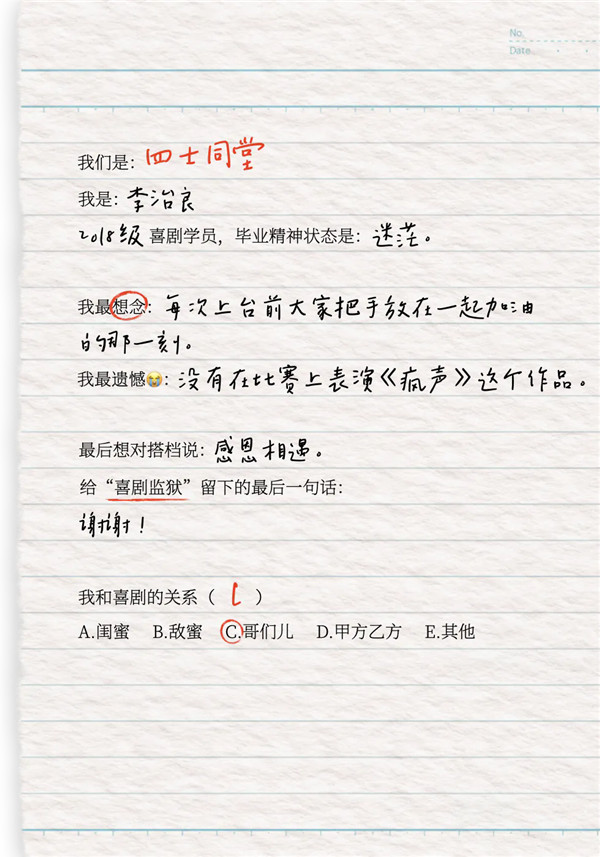 No.
Date
我们是：四士同堂
我是：李治良
2018级 喜剧学员，毕业精神状态是：迷茫。
我最想念：每次上台前大家把手放在一起加油
的那一刻。
我最遗憾😭：没有在比赛上表演《疯声》这个作品。
最后想对搭档说：感恩相遇。
给“喜剧监狱”留下的最后一句话：
谢谢！
我和喜剧的关系（ C ）
A.闺蜜 B.敌蜜 C.哥们儿 D.甲方乙方 E.其他